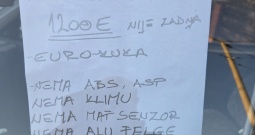 1200€ NIJE ZADNJA
- EURO KUKA
- NEMA ABS, ASP
NEMA KLIMU
- NEMA MAT SENZOR
NEMA ALU FELGE